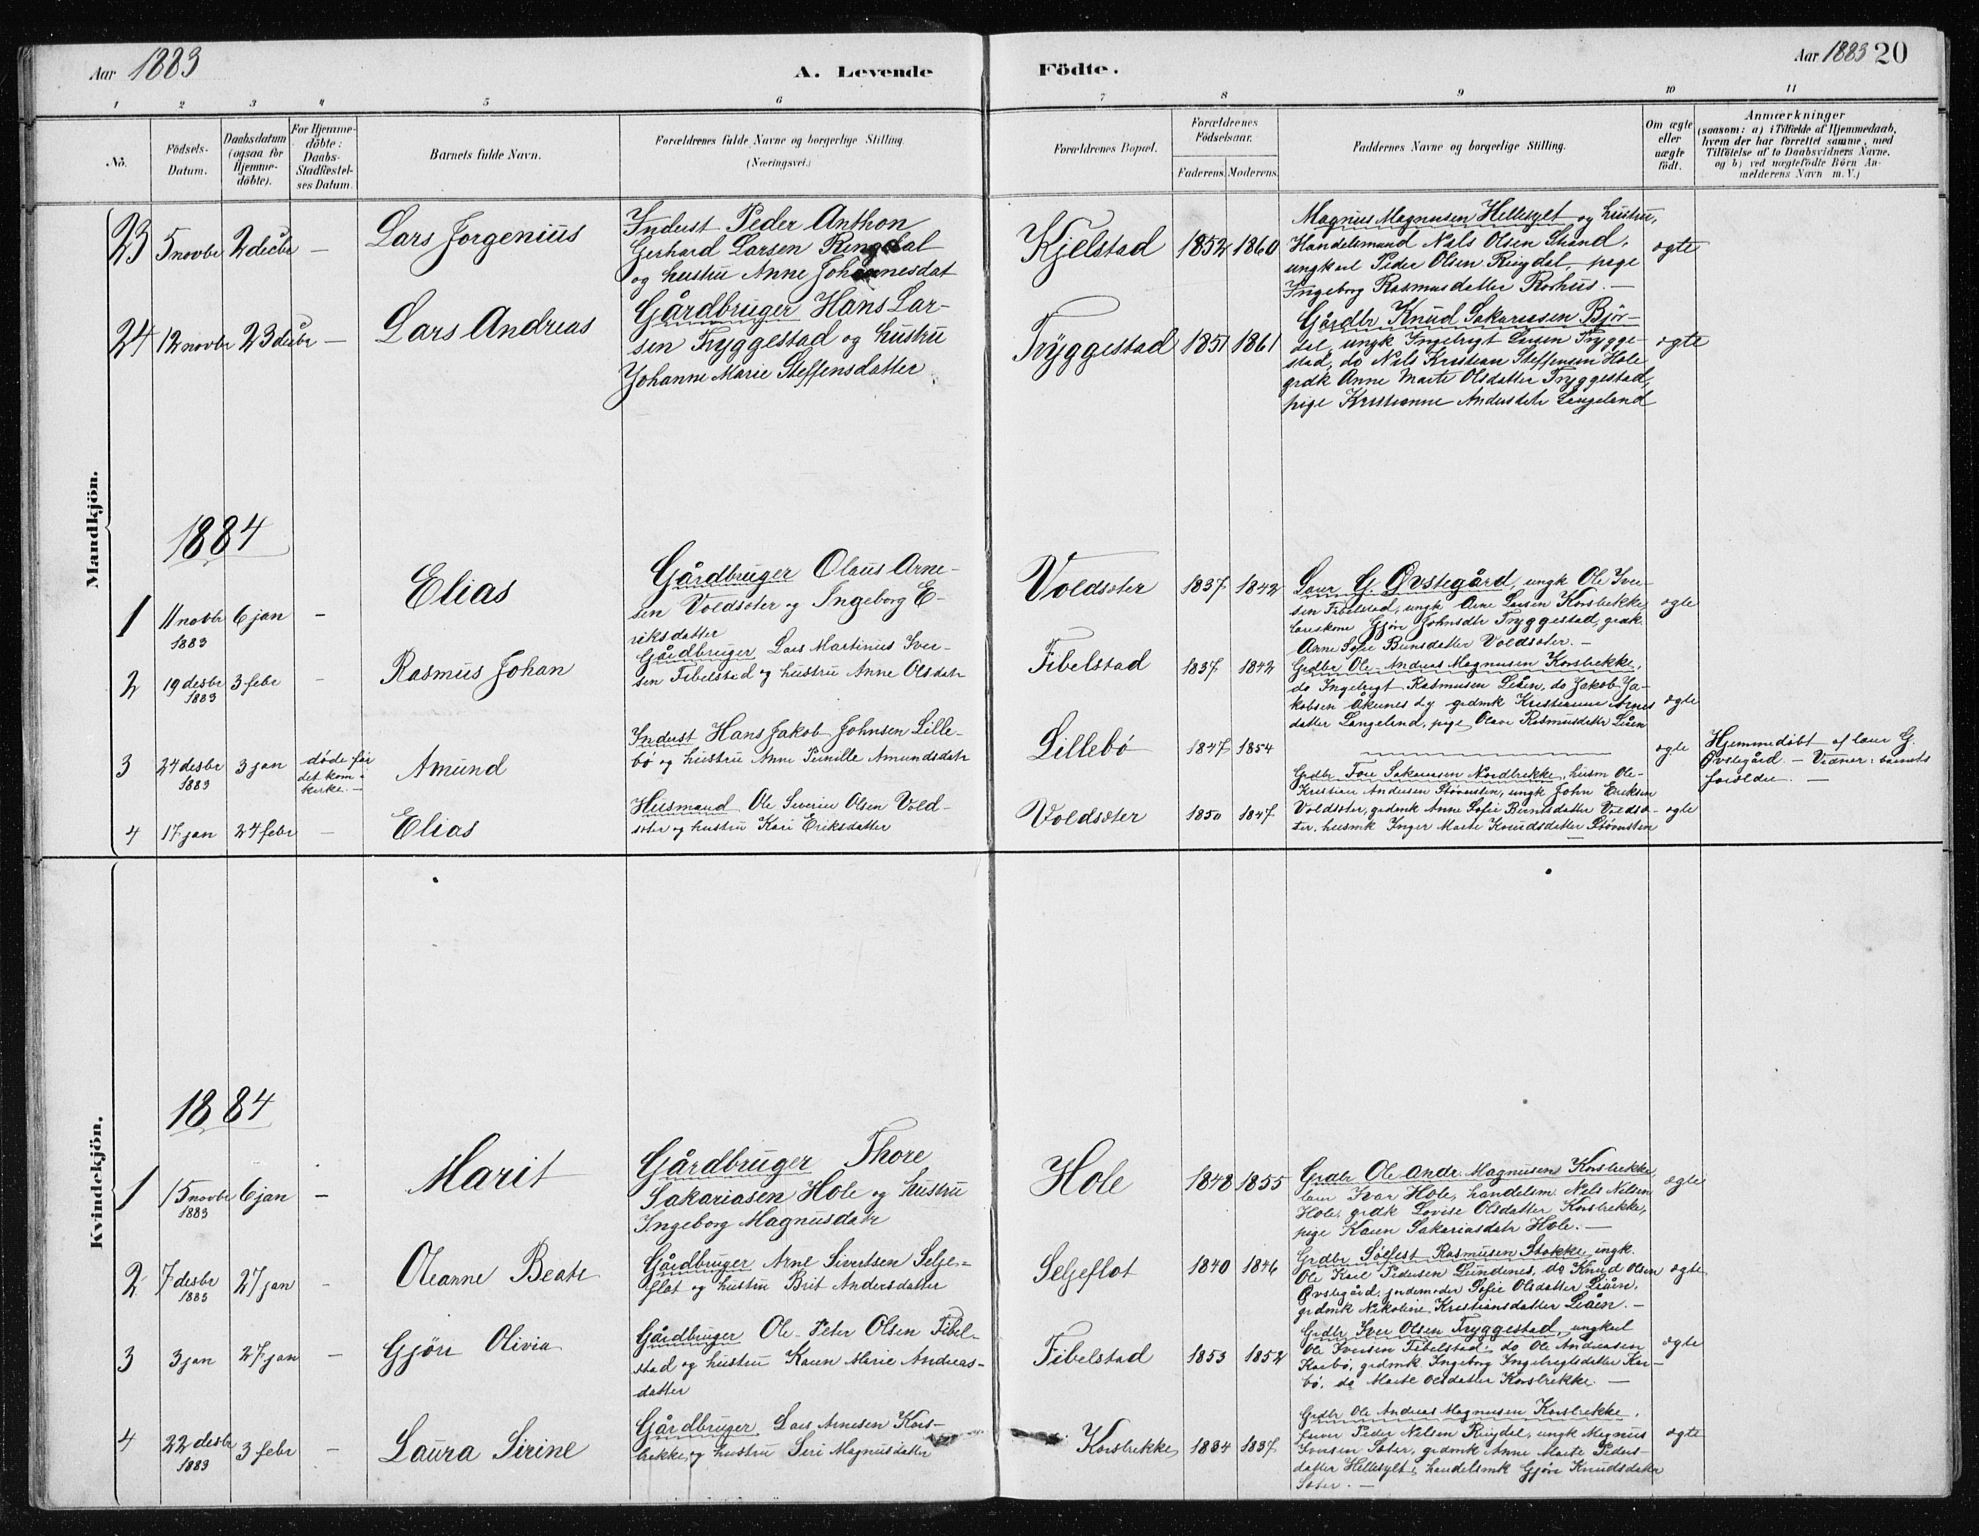 Aar 1883
A. Levende
Födte.
Aar 1883 20
1 2 3 4 5 6 7 8 9 10 11
No.
Födsels-
Datum.
Daabsdatum
(ogsaa for
Hjemme-
döbte).
For Hjemme-
döbte:
Daabs-
Stadfæstel-
ses Datum.
Barnets fulde Navn.
Forældrenes fulde Navne og borgerlige Stilling.
(Næringsvei.)
Forældrenes Bopæl.
Forældrenes
Födselsaar.
Faderens. Moderens.
Faddernes Navne og borgerlige Stilling.
Om ægte
eller
uægte
födt.
Anmærkninger
(saasom: a) i Tilfælde af Hjemmedaab,
hvem der har forrettet samme, med
Tilföielse af to Daabsvidners Navne,
og b) ved uægtefödte Börn An-
melderens Navn m. V.)
Mandkjön.
23 5 novbr 2 decbr — Lars Jorgenius
Inderst Peder Anthon
Gerhard Larsen Ringdal
og hustru Anne Johannesdat
Kjelstad 1852 1860
Magnus Magnusen Hellesylt og hustru,
Handelsmand Nils Olsen Strand,
ungkarl Peder Olsen Ringdal, pige
Ingeborg Rasmusdatter Rorhus. —
ægte
24 12 novbr 23 decbr — Lars Andreas
Gårdbruger Hans Lar-
sen Tryggestad og hustru
Johanne Marie Steffensdatter.
Tryggestad 1851 1861
Gårdbr Knud Sakariasen Bjør-
dal, ungk Ingebrigt Larsen Trygge-
stad, do Nils Kristian Steffensen Hole
grdk Anne Marte Olsdatter Tryggestad,
pige Kristianne Andersdatr Langeland
ægte
1884
1 11 novbr 6 jan —
1883
Elias
Gårdbruger Olaus Arne-
sen Voldsæter og Ingeborg E-
riksdatter
Voldsæter 1837 1842
Laur G. Øvstegård, ungk Ole Iver-
sen Fibelstad, ungk Arne Larsen Korsbrekke
Gjøri Johnsdtr Tryggestad, grdk.
Anne Sofie Berntsdatter Voldsæter. —
ægte
2 19 desbr 3 febr —
1883
Rasmus Johan
Gårdbruger Lars Martinus Iver-
sen Fibelstad og hustru Anne Olsdatr
Fibelstad 1837 1842
Grdbr Ole Andreas Magnusen Korsbrekke,
do Ingebrigt Rasmusen Leåen, do Jakob Ja-
kobsen Åknes og grdmk Kristianne Arnes
datter Langeland, pige Olave Rasmusdatr Leåen
ægte
3 24 desbr 3 jan
1883
døde før
det kom i
kirke. —
Amund
Inderst Hans Jakob Johnsen Lille-
bø og hustru Anne Pernille Amundsdatr
Lillebø 1847 1854
ægte
Hjemmedøbt af laur G.
Øvstegård. — Vidner: barnets
forældre. —
4 17 jan 24 febr — Elias
Husmand Ole Severin Olsen Vold-
sæter og hustru Kari Eriksdatter
Voldsæter 1850 1847
Grdbr Tore Sakariasen Nordbrekke, husm Ole
Kristian Andersen Størensten, ungk John Eriksen
Voldsæter, grdmk Anne Sofie Berntsdatter Voldsæ-
ter, husmk Inger Marte Knudsdatter Størensten
ægte
Kvindekjön.
1884
1 15 novbr 6 jan —
1883
Marit
Gårdbruger Thore
Sakariasen Hole og hustru
Ingeborg Magnusdatr
Hole 1848 1855
Grdbr Ole Andr. Magnusen Korsbrekke
Ivar Hole, handelsm. Nils Nilsen
Hole, grdk Lovise Olsdatter Korsbrekke,
pige Karen Sakariasdatr Hole. —
ægte
2 7 desbr 27 jan —
1883
Oleanne Beate
Gårdbruger Arne Sivertsen Selje-
flot og hustru Brit Andersdatter
Seljeflot 1840 1846
Grdbr Sølfest Rasmusen Stokke, ungk.
Ole Karl Pedersen Lundenes, do Knud Olsen
Øvstegård, jordemoder Sofie Olsdatter Leåen,
grdmk Nikoline Kristiansdatter Leåen. —
ægte
3 3 jan 27 jan — Gjøri Olivia
Gårdbruger Ole Peter Olsen Fibel-
stad og hustru Karen Marie Andreas-
datter
Fibelstad 1853 1852
Grdbr Iver Olsen Tryggestad, ungkarl
Ole Iversen Fibelstad, do Ole Andreasen
Karbø, grdmk Ingeborg Ingebrigtsdatter Kar-
bø, do Marte Olsdatter Korsbrekke. —
ægte
4 22 desbr 3 febr —
1883
Laura Sirine
Gårdbruger Lars Arnesen Kors-
brekke og hustru Siri Magnusdatter
Korsbrekke 1834 1837
Grdbr Ole Andreas Magnusen Korsbrekke,
Peder Nilsen Ringdal, ungk Magnus
Iversen Sæter, grdmk Anne Marte Peders-
datter Hellesylt, handelsmk Gjøri Knudsdatter
Sæter. —
ægte